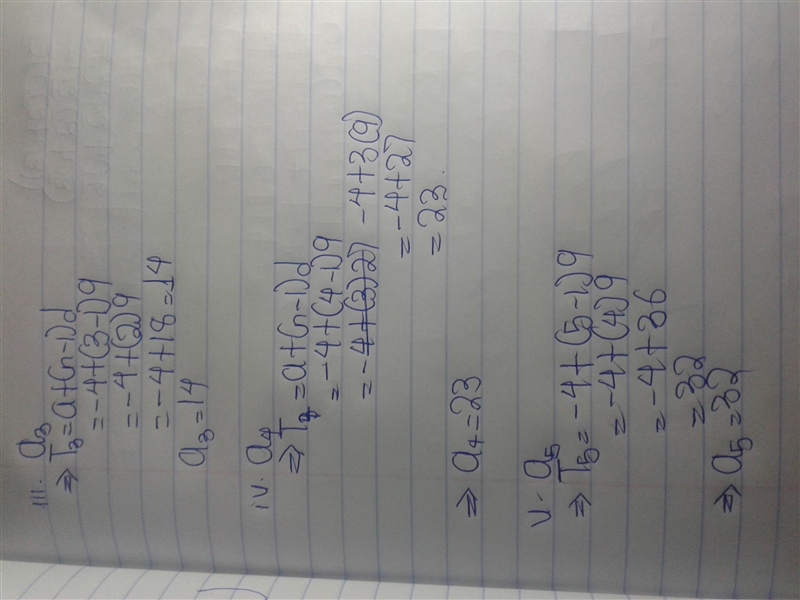 III. a₃
⇒ T₃ = a+(n-1)d
= -4+(3-1)9
= -4+(2)9
= -4+18=14
a₃=14
iv. a₄
⇒ T₄ = a+(n-1)d
= -4+(4-1)9
= -4+(3)27 -4+3(9)
= -4+27
= 23.
⇒ a₄=23
v. a₅
⇒ T₅= -4+(5-1)9
= -4+(4)9
= -4+36
= 32
⇒ a₅=32